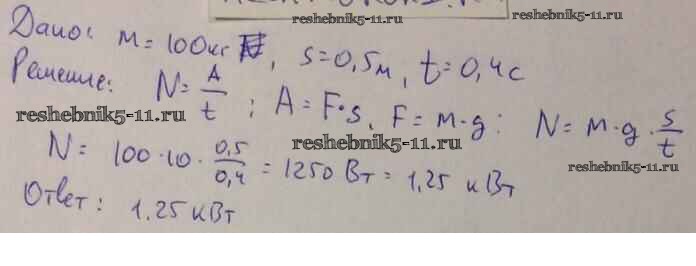 reshebnik5-11.ru
reshebnik5-11.ru
Дано: m = 100кг, s = 0,5м, t = 0,4с
Решение: N = A/t ; A = F·s, F = m·g ; N = m·g · s/t
reshebnik5-11.ru
reshebnik5-11.ru
reshebnik5-11.ru
N = 100·10 · 0,5/0,4 = 1250 Вт = 1,25 кВт
Ответ: 1.25 кВт